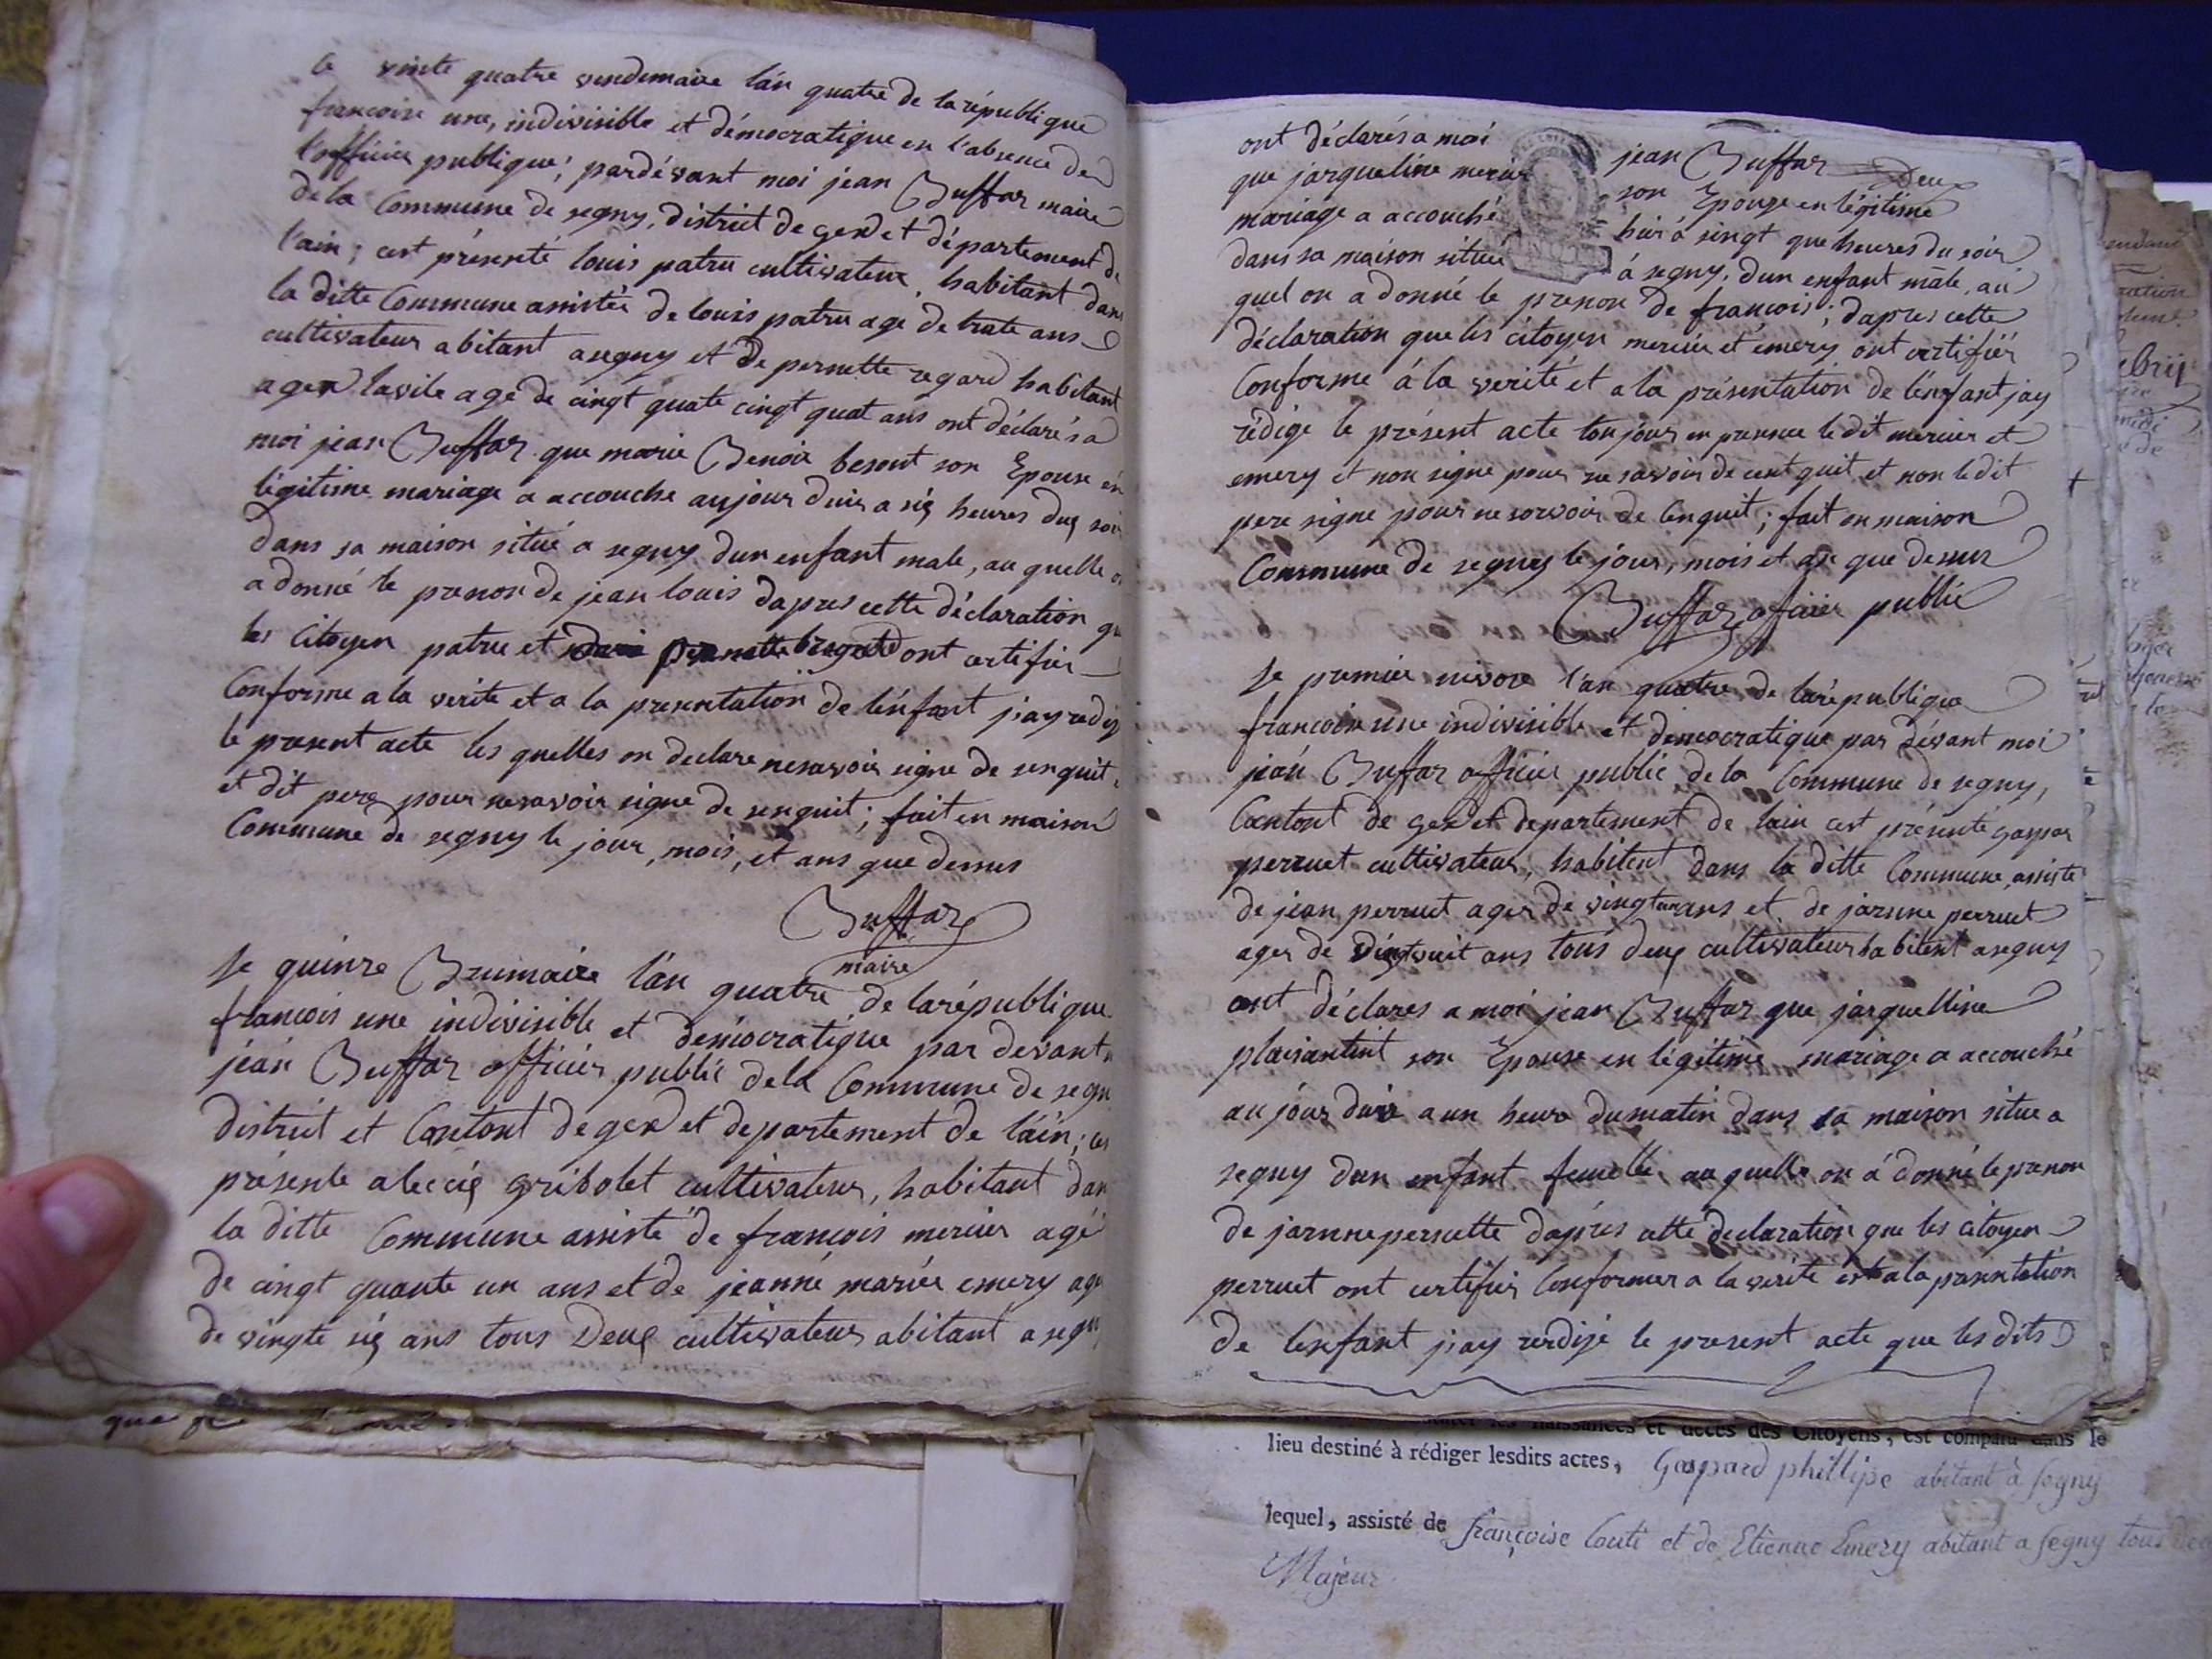 le vinte quatre vendemaire l'an quatre de la république
francoise une, indivisible et démocratique en l'absence de
l'officier publique; pardévant moi jean Buffaz maire
de la Commune de segny, district de gex et département de
l'ain; cest présenté louis patru cultivateur, habitant dans
la ditte Commune assistée de louis patru age de trate ans
cultivateur abitant asegny et de pernette regard habitant
agex lavile agé de cingt quate cingt quat ans ont déclarés a
moi jean Buffaz que marie Benoie besont son Epouse en
légitime mariage a accouche aujour duis a sig heures dug soir
dans sa maison situé a segny dun enfant male, au quelle on
a donné le prenon de jean louis dapres cette déclaration que
les Citoyen patru et pernette ont certifier
Conforme a la verite et a la presentation de l'énfant j'ay redig
le present acte les quelles on declare nesavoir signe de senquit
et dit pere pour nesavoir signe de senquit; fait en maison
Commune de segny le jour, mois, et ans que dessus
Buffaz
maire
le quinze Brumaire l'an quatre de larépublique
francois une indivisible et démocratique par devant
jéan Buffaz officier public dela Commune de segn
district et Contont de gex et departement de l'ain; ces
présente alecig gribolet cultivateur, habitant dan
la ditte Commune assisté de francois mercier agé
de cingt quante un ans et de jeanne mariée emery age
de vingte sig ans tous Deug cultivateur abitant a segn
ont déclarés a moi jean Buffaz Deux
que jarqueline mercier son Epouze en légitime
mariage a accouché hier á vingt que heures du soir
dans sa maison situé á segny. dun enfant mâle, au
quel on a donné le prenon de francois; dapres cette
déclaration que les citoyen mercier et emery ont certifiér
Conforme á la verité et a la présentation de l'enfant jay
rédige le présent acte toujour en presence le dit mercier et
emery et non signe pour ne savoir de cent quit et non le dit
pere signe pour ne savoir de lenquit; fait en maison
Commune de segny le jour, mois et an que dessus
Buffaz officier public
le premier nivose l'an quatre de larépublique
francoise une indivisible et démocratique par dévant moi
jéan Buffaz officier public de la Commune de segny,
Contont de gex et departement de lain cest présenté gaspar
perruet cultivateur, habitent dans la ditte Commune, assiste
de jean perruet ager de vingt ans et de jarnne perruet
ager de vingtuit ans tous deug cultivateur habitent asegny
ont déclares a moi jean Buffaz que jarquelline
plaisantint son Epouse en légitime mariage a accouché
au jour duis a un heure dumatin dans sa maison situe a
segny dun enfant femelle au quelle on á donné le prenon
de jarnne pernette daprés cette declaration que les citoyen
perruet ont certifier Conformer a la verité est a la presentation
de lenfant j'ay rerdije le present acte que les dits
lieu destiné à rédiger lesdits actes, Gaspard phillipe abitant à segny
lequel, assisté de françoise Couti et de Etienne Emery abitant a segny tous deu
Majeur